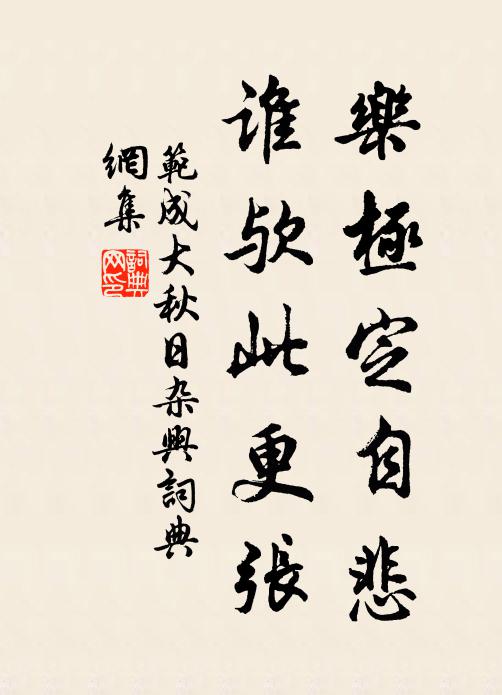 樂極定自悲
誰欤此更張
範成大秋日杂興詞典
網集
詞典
网印